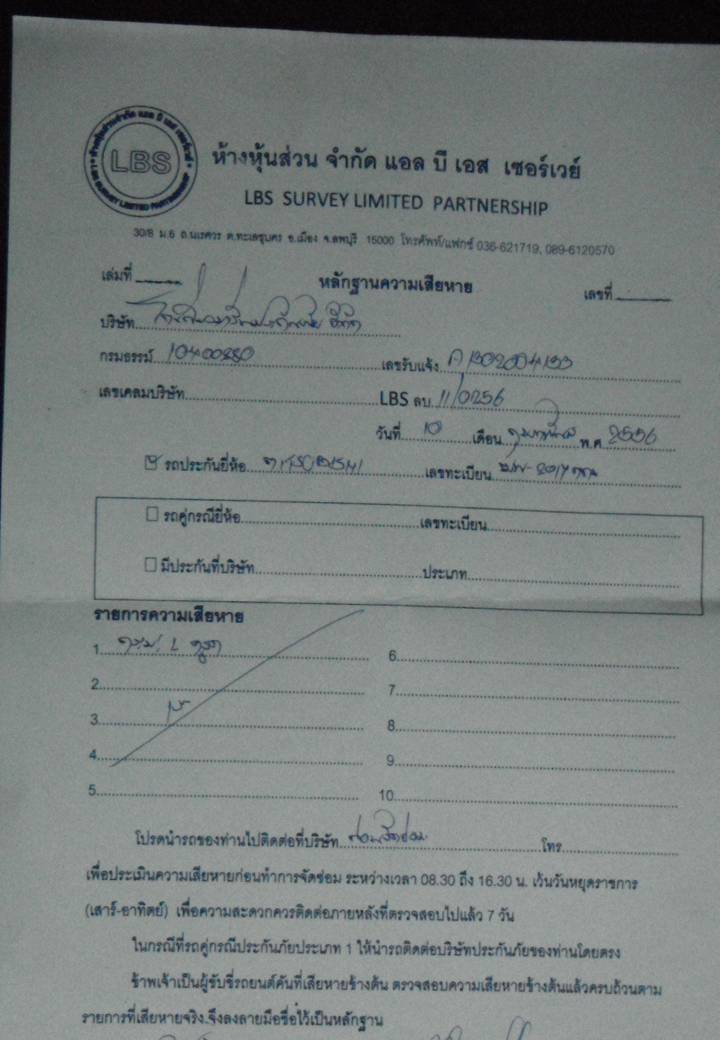 LBS
ห้างหุ้นส่วน จำกัด แอล บี เอส เซอร์เวย์
LBS SURVEY LIMITED PARTNERSHIP
30/8 ม.6 ถ.นเรศวร ต.ทะเลชุบศร อ.เมือง จ.ลพบุรี 15000 โทรศัพท์/แฟกซ์ 036-621719, 089-6120570
เล่มที่ หลักฐานความเสียหาย เลขที่
บริษัท
กรมธรรม์ เลขรับแจ้ง
เลขเคลมบริษัท LBS ลบ. 11/0256
วันที่ 10 เดือน กุมภาพันธ์ พ.ศ. 2556
รถประกันยี่ห้อ เลขทะเบียน
รถคู่กรณียี่ห้อ เลขทะเบียน
มีประกันที่บริษัท ประเภท
รายการความเสียหาย
1. 6.
2. 7.
3. 8.
4. 9.
5. 10.
โปรดนำรถของท่านไปติดต่อที่บริษัท โทร
เพื่อประเมินความเสียหายก่อนทำการจัดซ่อม ระหว่างเวลา 08.30 ถึง 16.30 น. เว้นวันหยุดราชการ
(เสาร์-อาทิตย์) เพื่อความสะดวกควรติดต่อภายหลังที่ตรวจสอบไปแล้ว 7 วัน
ในกรณีที่รถคู่กรณีประกันภัยประเภท 1 ให้นำรถติดต่อบริษัทประกันภัยของท่านโดยตรง
ข้าพเจ้าเป็นผู้ขับขี่รถยนต์คันที่เสียหายข้างต้น ตรวจสอบความเสียหายข้างต้นแล้วครบถ้วนตาม
รายการที่เสียหายจริง จึงลงลายมือชื่อไว้เป็นหลักฐาน